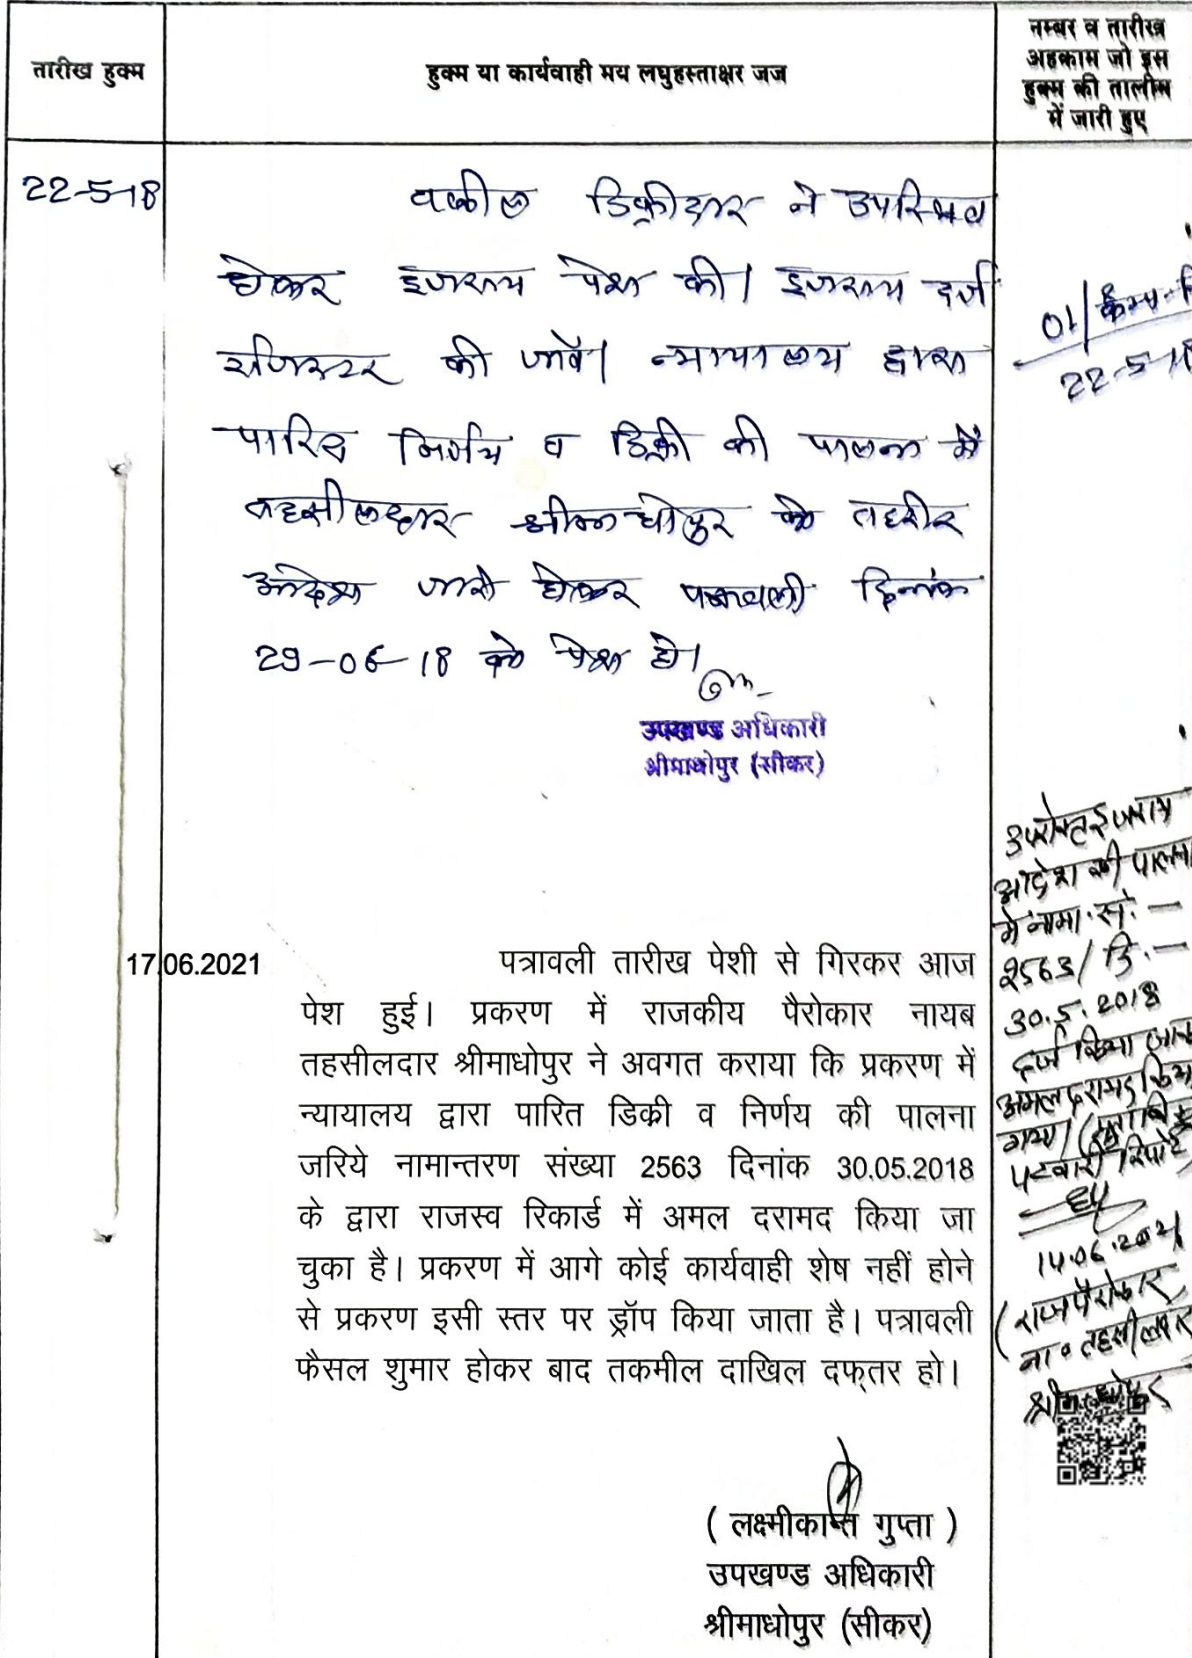 तारीख हुक्म
हुक्म या कार्यवाही मय लघुहस्ताक्षर जज
नम्बर व तारीख
अहकाम जो इस
हुक्म की तालीम
में जारी हुए
22-5-18
वकील डिक्रीदार ने उपस्थित
होकर इजराय पेश की। इजराय दर्ज
रजिस्टर की जावें। न्यायालय द्वारा
पारित निर्णय व डिक्री की पालना में
तहसीलदार श्रीमाधोपुर को तहरीर
आदेश जारी होकर पत्रावली दिनांक
29-06-18 को पेश हो।
उपखण्ड अधिकारी
श्रीमाधोपुर (सीकर)
01/कैम्प
22-5-18
17.06.2021
पत्रावली तारीख पेशी से गिरकर आज
पेश हुई। प्रकरण में राजकीय पैरोकार नायब
तहसीलदार श्रीमाधोपुर ने अवगत कराया कि प्रकरण में
न्यायालय द्वारा पारित डिकी व निर्णय की पालना
जरिये नामान्तरण संख्या 2563 दिनांक 30.05.2018
के द्वारा राजस्व रिकार्ड में अमल दरामद किया जा
चुका है। प्रकरण में आगे कोई कार्यवाही शेष नहीं होने
से प्रकरण इसी स्तर पर ड्रॉप किया जाता है। पत्रावली
फैसल शुमार होकर बाद तकमील दाखिल दफ्तर हो।
( लक्ष्मीकान्त गुप्ता )
उपखण्ड अधिकारी
श्रीमाधोपुर (सीकर)
उपरोक्त इजराय
आदेश की पालना
में नामा. सं. –
2563/ दि. –
30.5.2018
दर्ज किया जाकर
अमल दरामद किया
गया।
पटवारी रिपोर्ट
14.06.2021
(राजपैरोकार
ना॰ तहसीलदार
श्रीमाधोपुर